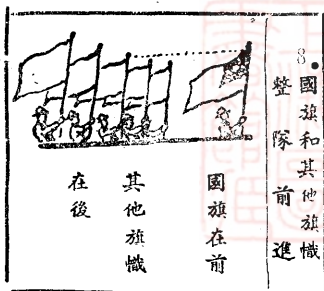 8.國旗和其他旗幟
整隊前進
國旗在前
其他旗幟
在後